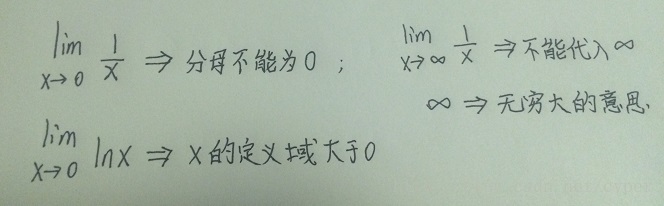 lim x→0 1/x ⇒ 分母不能为0 ; lim x→∞ 1/x ⇒ 不能代入∞
∞ ⇒ 无穷大的意思.
lim x→0 lnx ⇒ x的定义域大于0